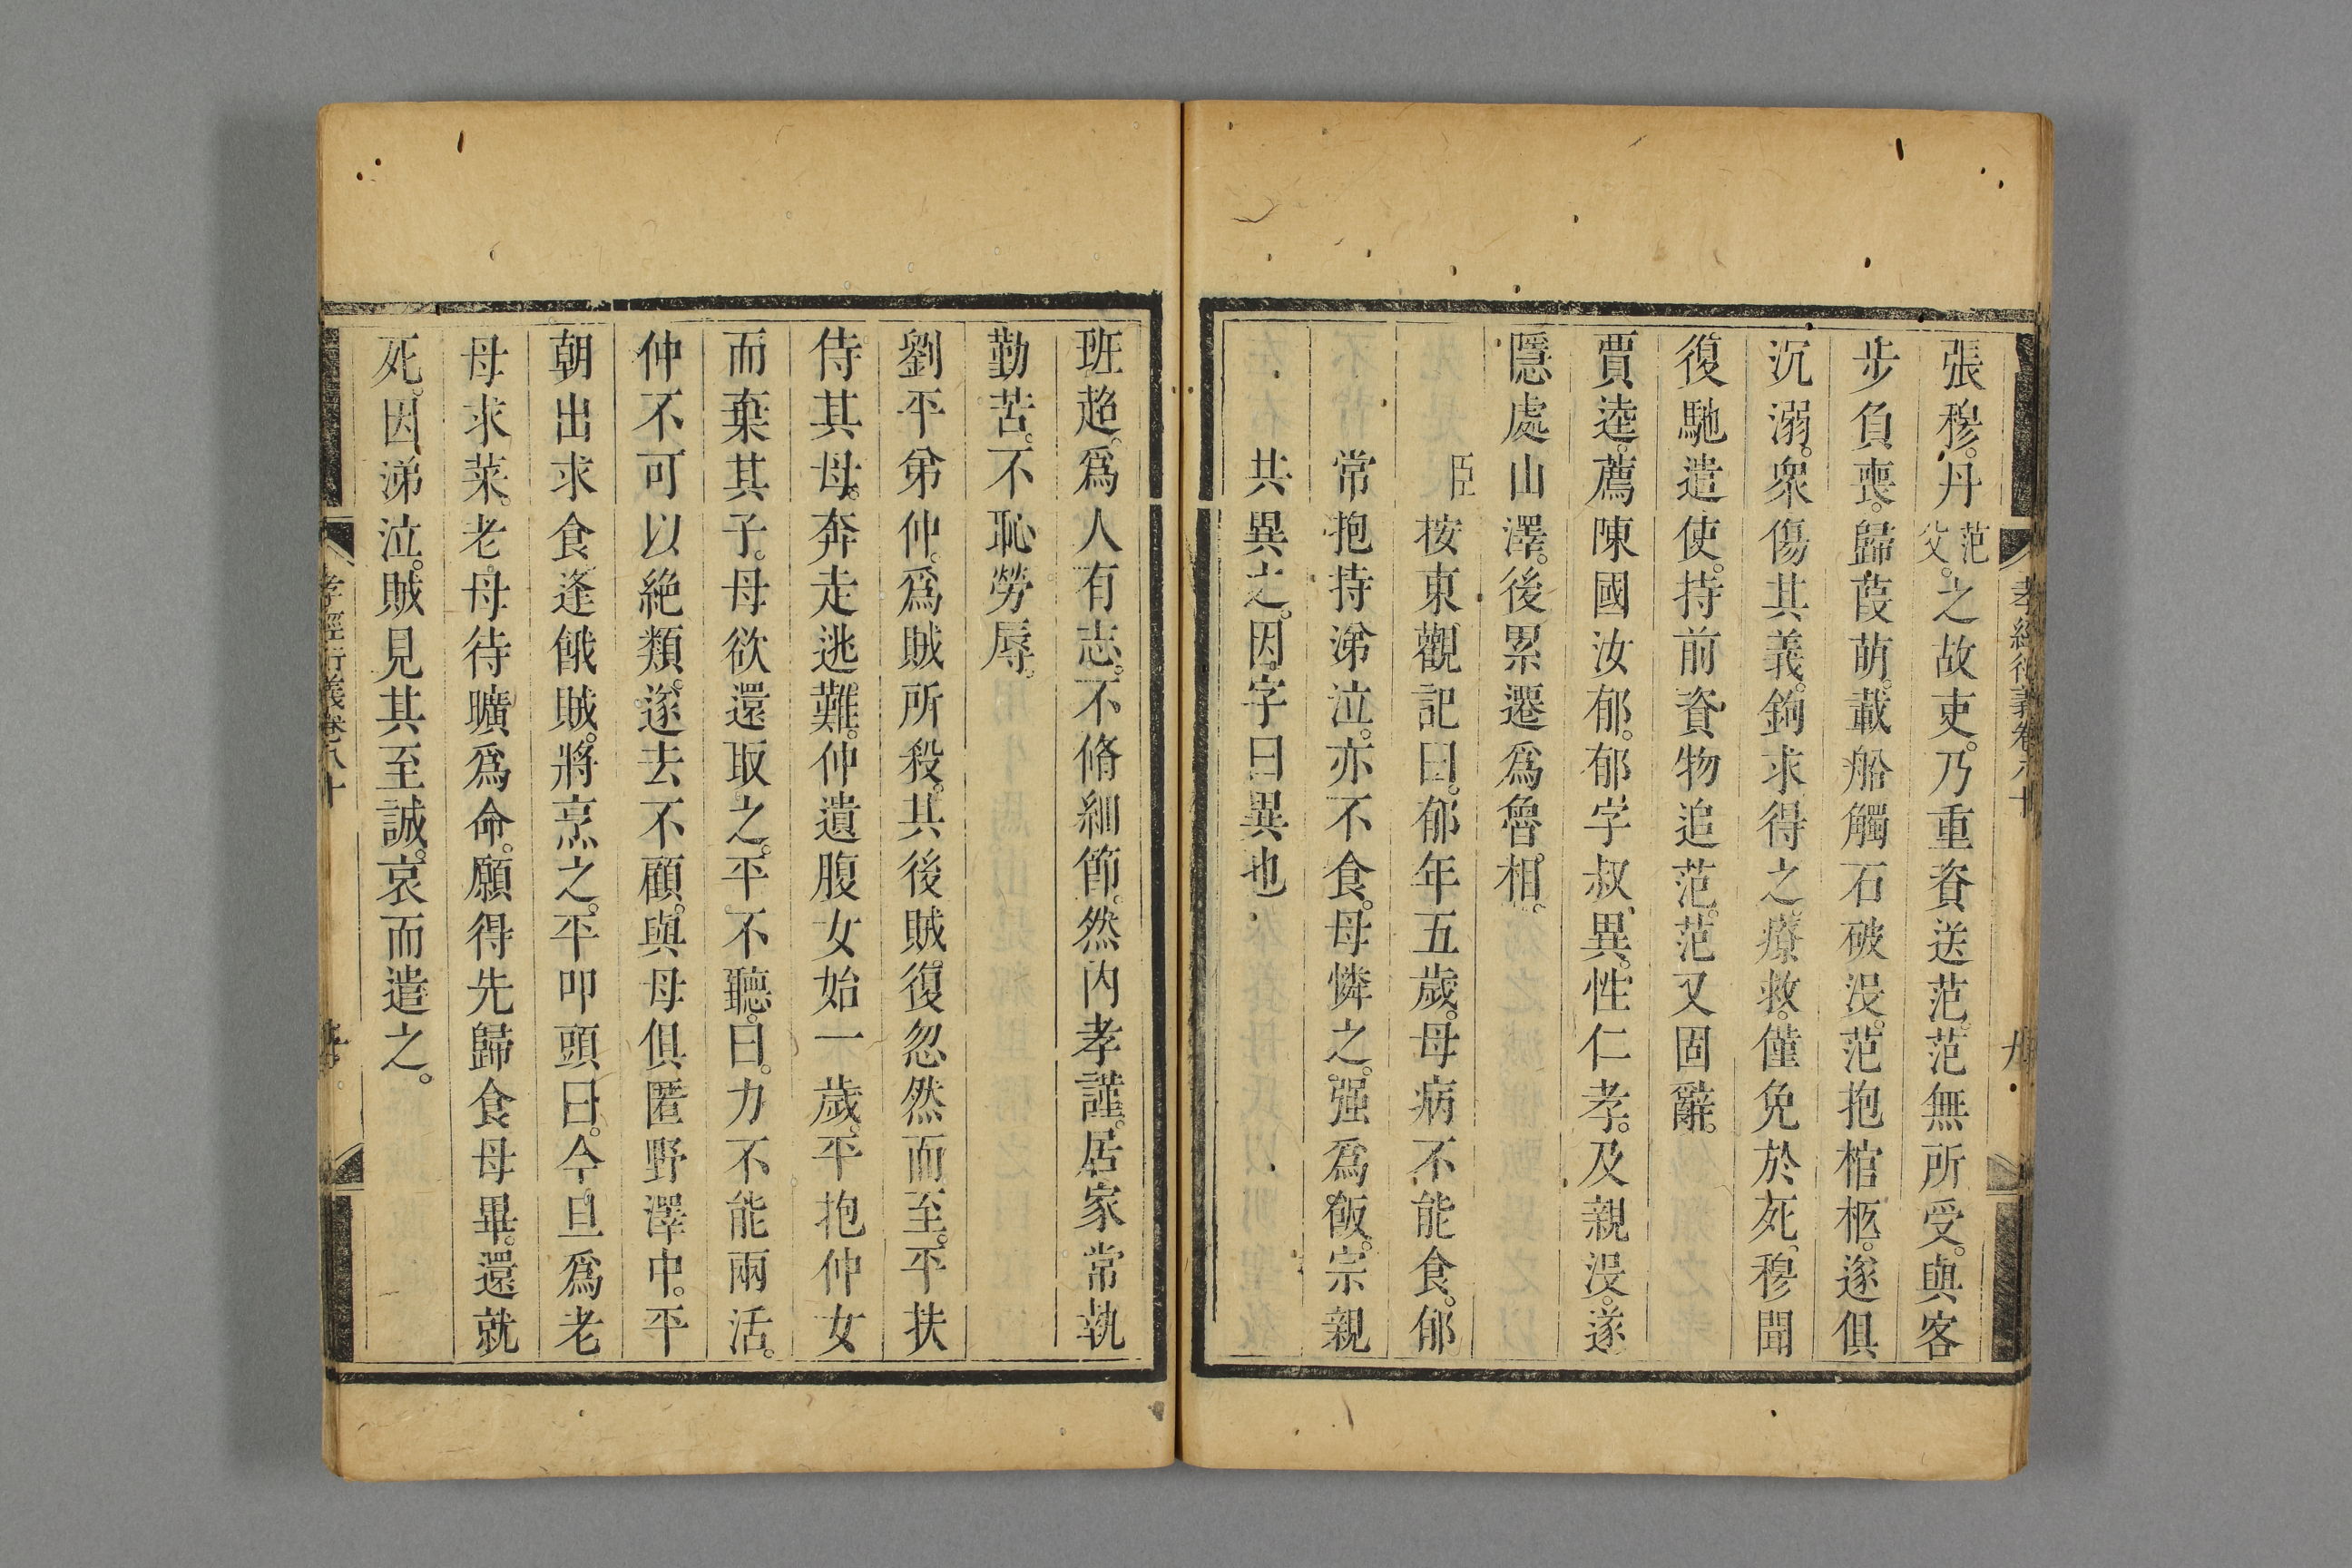 張穆。丹范父。之故吏。乃重資送范。范無所受。與客
步負喪。歸葭萌。載船觸石破没。范抱棺柩。遂俱
沉溺。衆傷其義。鉤求得之。療救。僅免於死。穆聞
復馳遣使。持前資物追范。范又固辭。
賈逵。薦陳國汝郁。郁字叔異。性仁孝。及親没。遂
隱處山澤。後累遷爲魯相。
臣按東觀記曰。郁年五歲。母病不能食。郁
常抱持涕泣。亦不食。母憐之。强爲飯。宗親
共異之。因字曰異也
班超。爲人有志。不脩細節。然内孝謹。居家常執
勤苦。不恥勞辱。
劉平弟仲。爲賊所殺。其後賊。復忽然而至。平扶
侍其母。奔走逃難。仲遺腹女始一歲。平抱仲女
而棄其子。母欲還取之。平不聽。曰。力不能兩活。
仲不可以絶類。遂去不顧。與母俱匿野澤中。平
朝出求食。逢餓賊。將烹之。平叩頭曰。今旦爲老
母求菜。老母待曠爲命。願得先歸食母畢。還就
死。因涕泣。賊見其至誠。哀而遣之。
孝經衍義卷八十